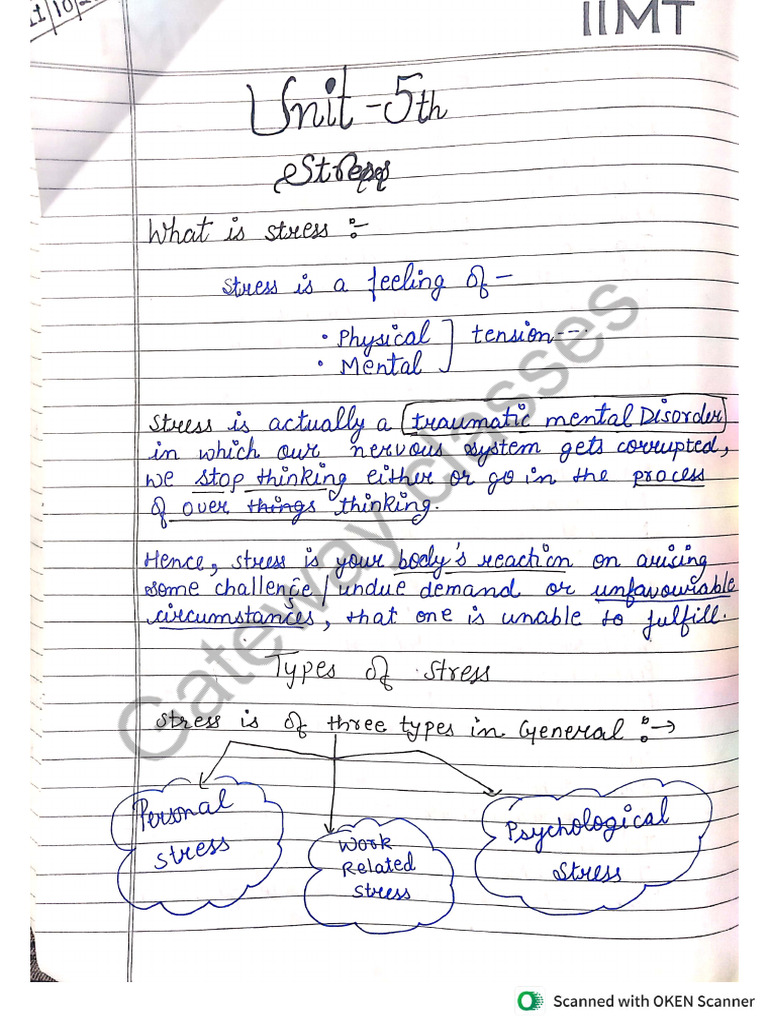 11/10/2
IIMT
Unit-5th
Stress
What is stress :-
stress is a feeling of -
• Physical ] tension---
• Mental
stress is actually a (traumatic mental Disorder)
in which our nervous system gets corrupted,
we stop thinking either or go in the process
of over things thinking.
Hence, stress is your body's reaction on arising
some challenge/undue demand or unfavourable
circumstances, that one is unable to fulfill.
Types of stress
stress is of three types in General :→
Personal
stress
Work
Related
stress
Psychological
stress
Gateway classes
Scanned with OKEN Scanner